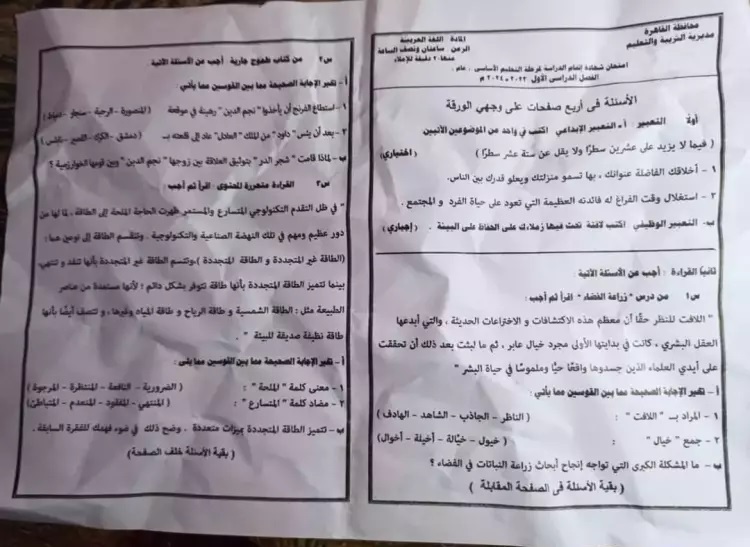 محافظة القاهرة
مديرية التربية والتعليم
المادة اللغة العربية
الزمن ساعتان ونصف الساعة
منها ٢٠ دقيقة للإملاء
امتحان شهادة إتمام الدراسة لمرحلة التعليم الأساسى . عام .
الفصل الدراسى الأول ٢٠٢٣ - ٢٠٢٤ م
الأسئلة فى أربع صفحات على وجهي الورقة
أولًا التعبير : أ - التعبير الإبداعي اكتب في واحد من الموضوعين الآتيين
( فيما لا يزيد على عشرين سطرًا ولا يقل عن ستة عشر سطرًا ) (اختياري)
١ - أخلاقك الفاضلة عنوانك ، بها تسمو منزلتك ويعلو قدرك بين الناس.
٢ - استغلال وقت الفراغ له فائدته العظيمة التي تعود على حياة الفرد و المجتمع .
ب- التعبير الوظيفي اكتب لافتة تحث فيها زملاءك على الحفاظ على البيئة . (إجباري)
ثانيًا القراءة : أجب عن الأسئلة الآتية
س١ من درس " زراعة الفضاء " اقرأ ثم أجب :
" اللافت للنظر حقًا أن معظم هذه الاكتشافات و الاختراعات الحديثة ، والتي أبدعها
العقل البشري ، كانت في بدايتها الأولى مجرد خيال عابر ، ثم ما لبثت بعد ذلك أن تحققت
على أيدي العلماء الذين جسدوها واقعًا حيًا وملموسًا في حياة البشر "
أ - تخير الإجابة الصحيحة مما بين القوسين مما يأتي :
١ - المراد بـ " اللافت " : ( الناظر - الجاذب - الشاهد - الهادف )
٢ - جمع " خيال " : ( خيول - خيّالة - أخيلة - أخوال )
ب- ما المشكلة الكبرى التي تواجه إنجاح أبحاث زراعة النباتات في الفضاء ؟
( بقية الأسئلة فى الصفحة المقابلة )
س٢ من كتاب طموح جارية أجب عن الأسئلة الآتية
أ - تخير الإجابة الصحيحة مما بين القوسين مما يأتي
١ - استطاع الفرنج أن يأخذوا " نجم الدين " رهينة في موقعة ( المنصورة - الرحبة - سنجار - دمياط )
٢ - بعد أن يئس " داود " من الملك " العادل" عاد إلى قلعته بـ ( دمشق - الكرك - القصير - نابلس )
ب - لماذا قامت " شجر الدر " بتوثيق العلاقة بين زوجها " نجم الدين " وبين قومها الخوارزمية ؟
س٣ القراءة متحررة المحتوى : اقرأ ثم أجب :
" في ظل التقدم التكنولوجي المتسارع والمستمر ظهرت الحاجة الملحة إلى الطاقة ، لما لها من
دور عظيم ومهم في تلك النهضة الصناعية والتكنولوجية . وتنقسم الطاقة إلى نوعين هما :
(الطاقة غير المتجددة و الطاقة المتجددة )،وتتسم الطاقة غير المتجددة بأنها تنفد و تنتهي،
بينما تتميز الطاقة المتجددة بأنها طاقة تتوفر بشكل دائم ؛ لأنها مستمدة من عناصر
الطبيعة مثل : الطاقة الشمسية و طاقة الرياح و طاقة المياه وغيرها ، و تتصف أيضًا بأنها
طاقة نظيفة صديقة للبيئة " .
أ - تخير الإجابة الصحيحة مما بين القوسين مما يلى :
١ - معنى كلمة " الملحة " : ( الضرورية - النافعة - المنتظرة - المرجوة )
٢ - مضاد كلمة " المتسارع " : ( المنتهي - المفقود - المنعدم - المتباطئ )
ب- تتميز الطاقة المتجددة بميزات متعددة . وضح ذلك في ضوء فهمك للفقرة السابقة .
( بقية الأسئلة خلف الصفحة )